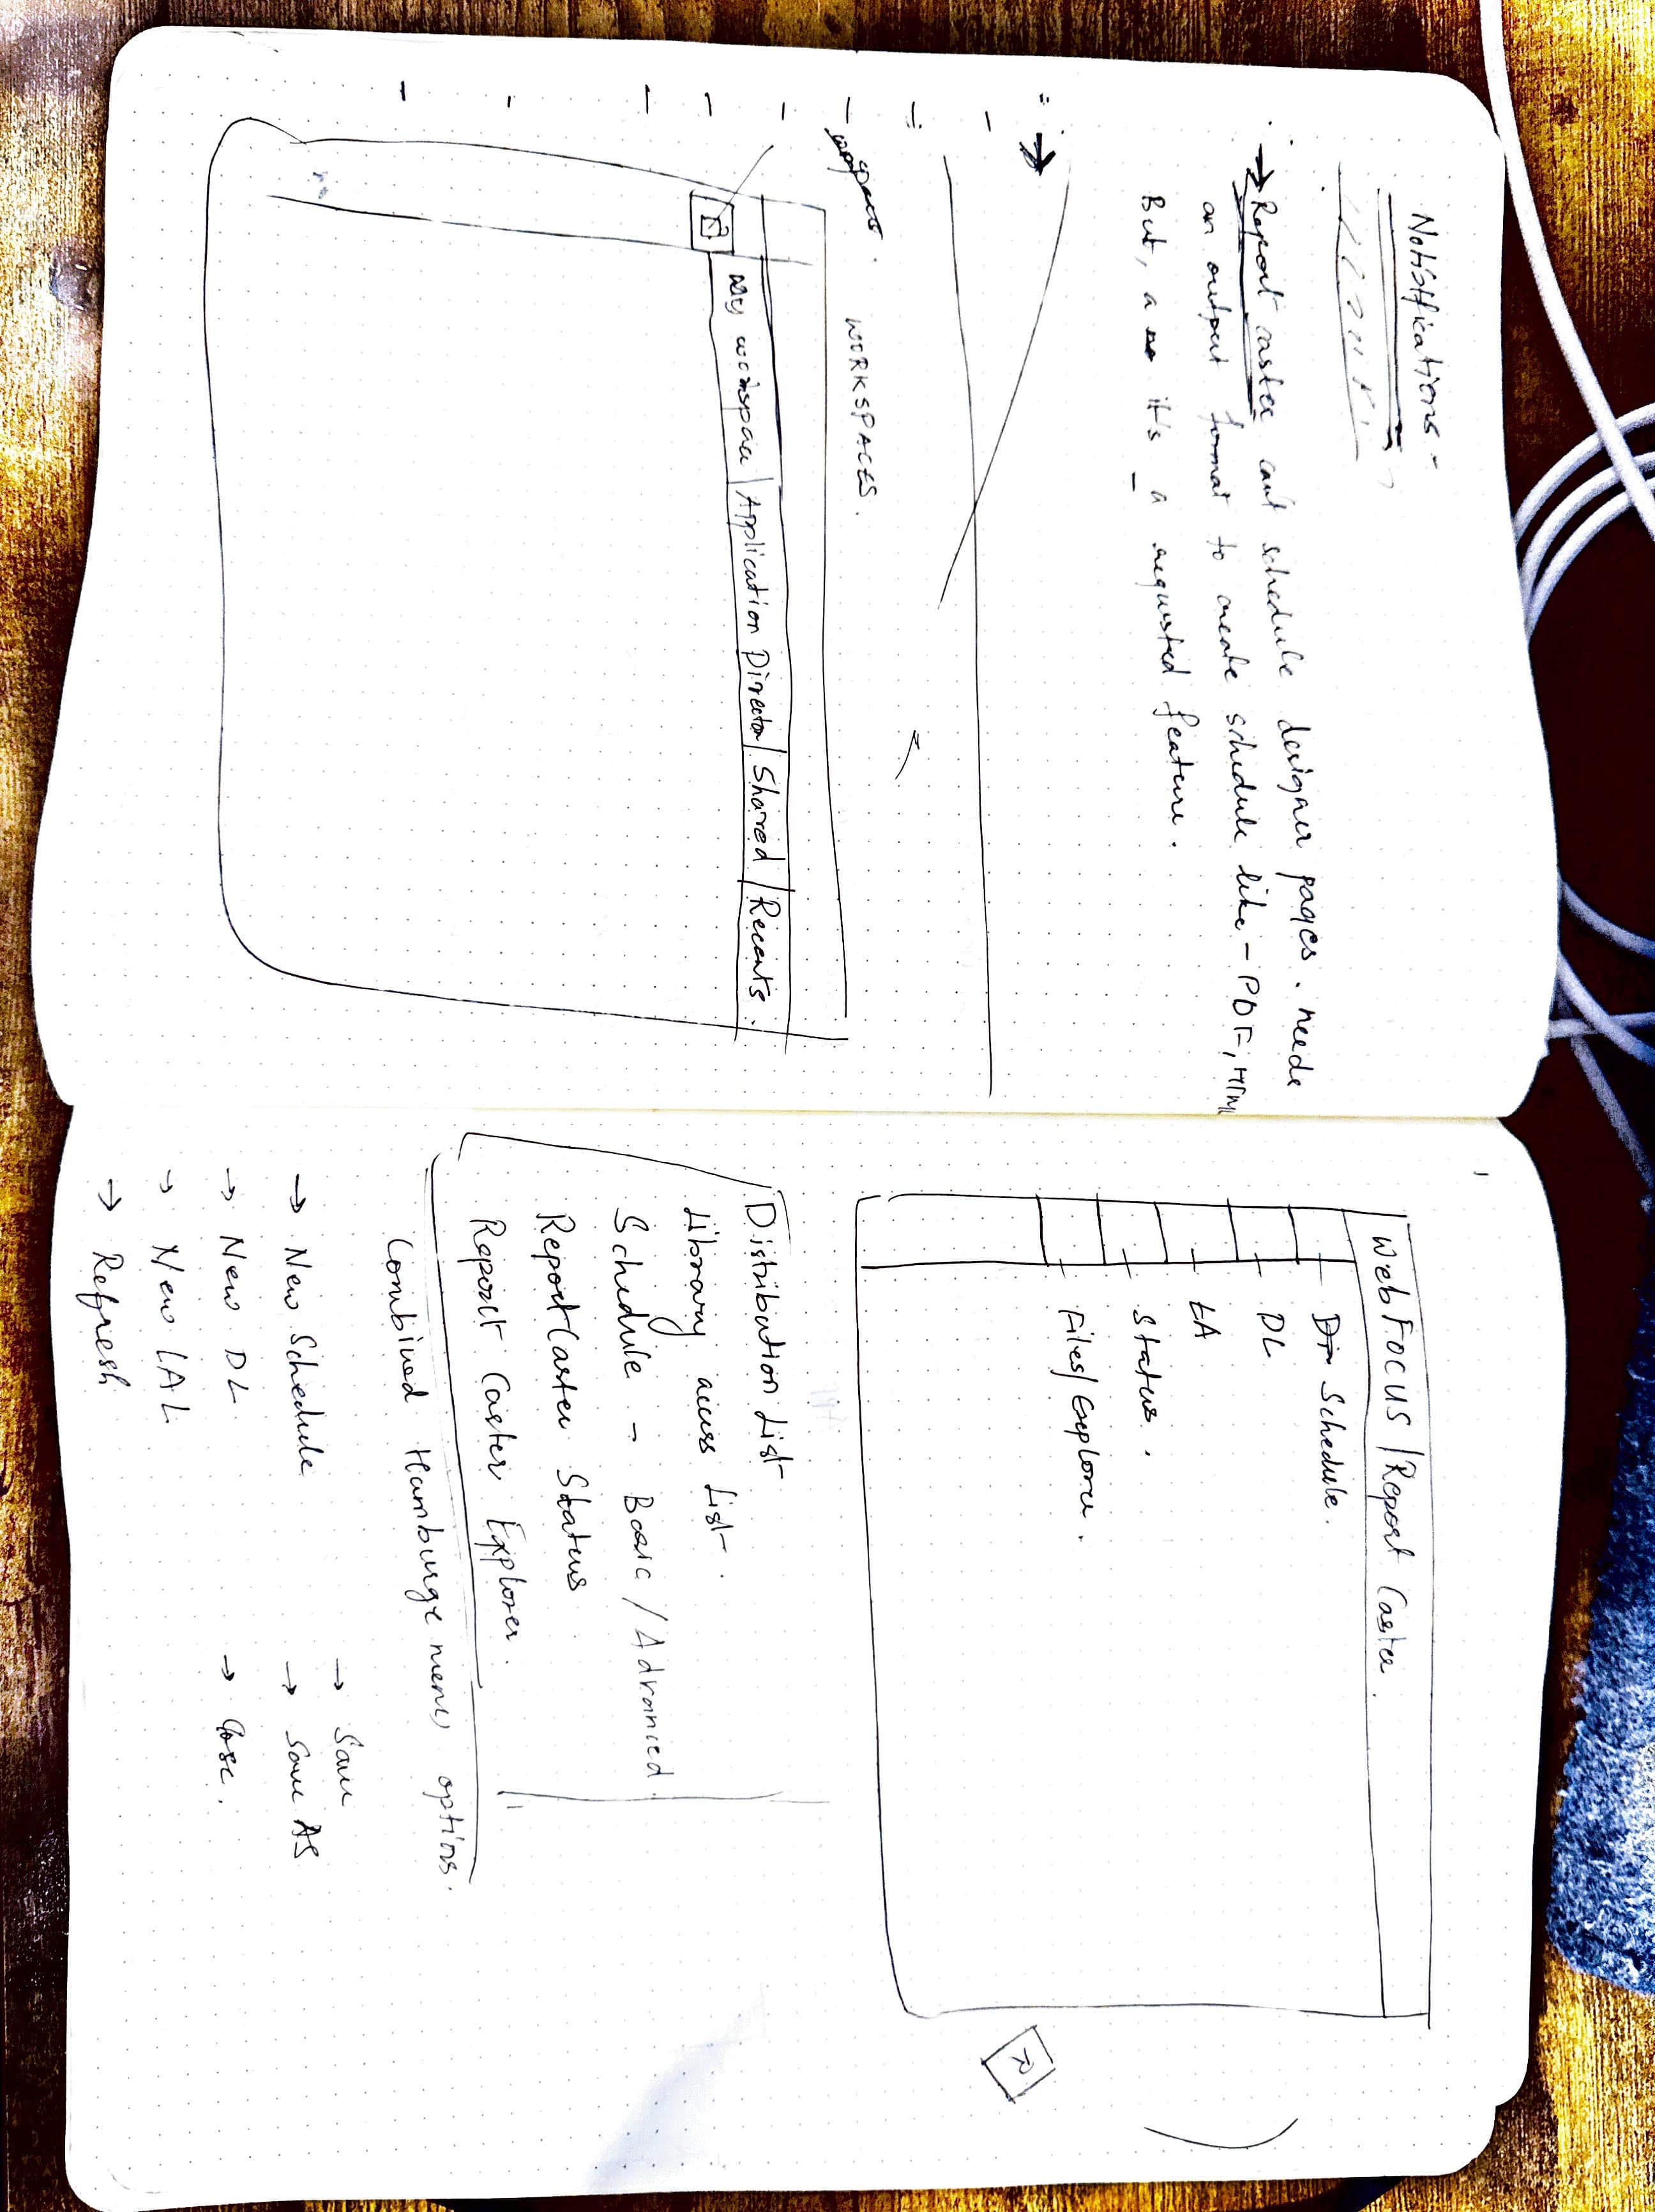 Notifications -
→ Report caster can't schedule designer pages. needs
an output format to create schedule like - PDF, HTML
But, a it's a requested feature.
WORKSPACES.
My workspace / Application Director / Shared / Recents.
WebFOCUS / Report Caster.
Schedule.
DL
LA
Status.
Files/Explorer.
Distribution List
Library access List.
Schedule - Basic / Advanced
ReportCaster Status
Report Caster Explorer.
Combined Hamburge menu options.
→ New Schedule
→ New DL
→ New LAL
→ Refresh
→ Save
→ Save AS
→ Close.